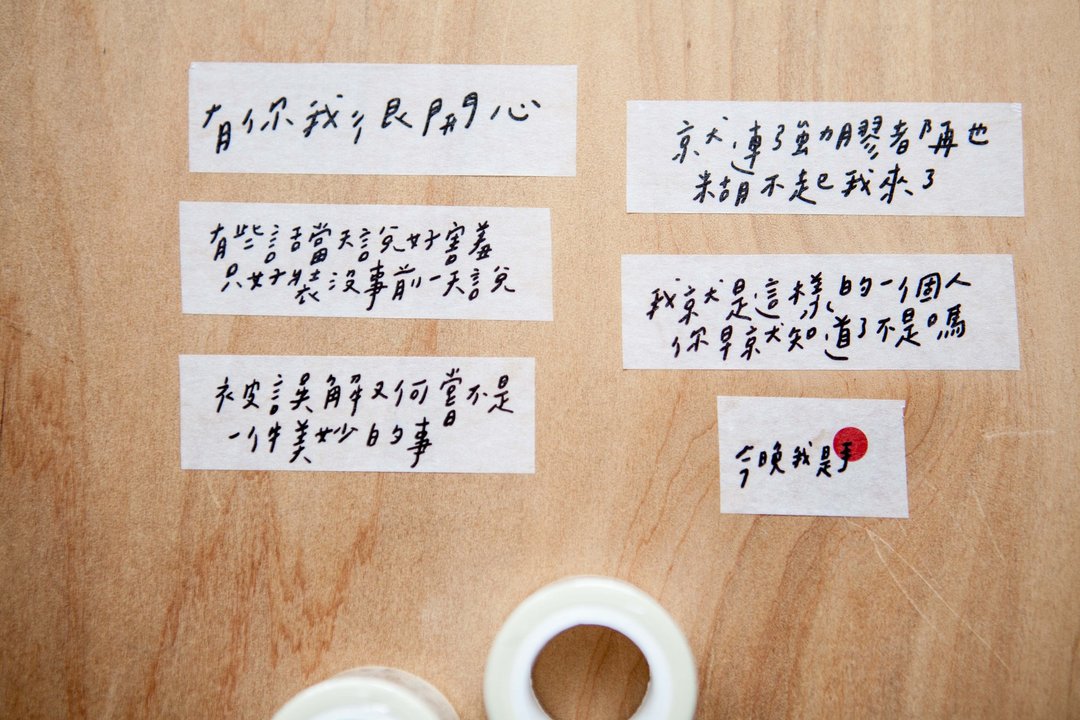 有你我很開心
有些話當天說好害羞
只好裝沒事前一天說
被誤解又何嘗不是
一件美妙的事
就連強力膠都再也
糊不起我來了
我就是這樣的一個人
你早就知道了不是嗎
今晚我是